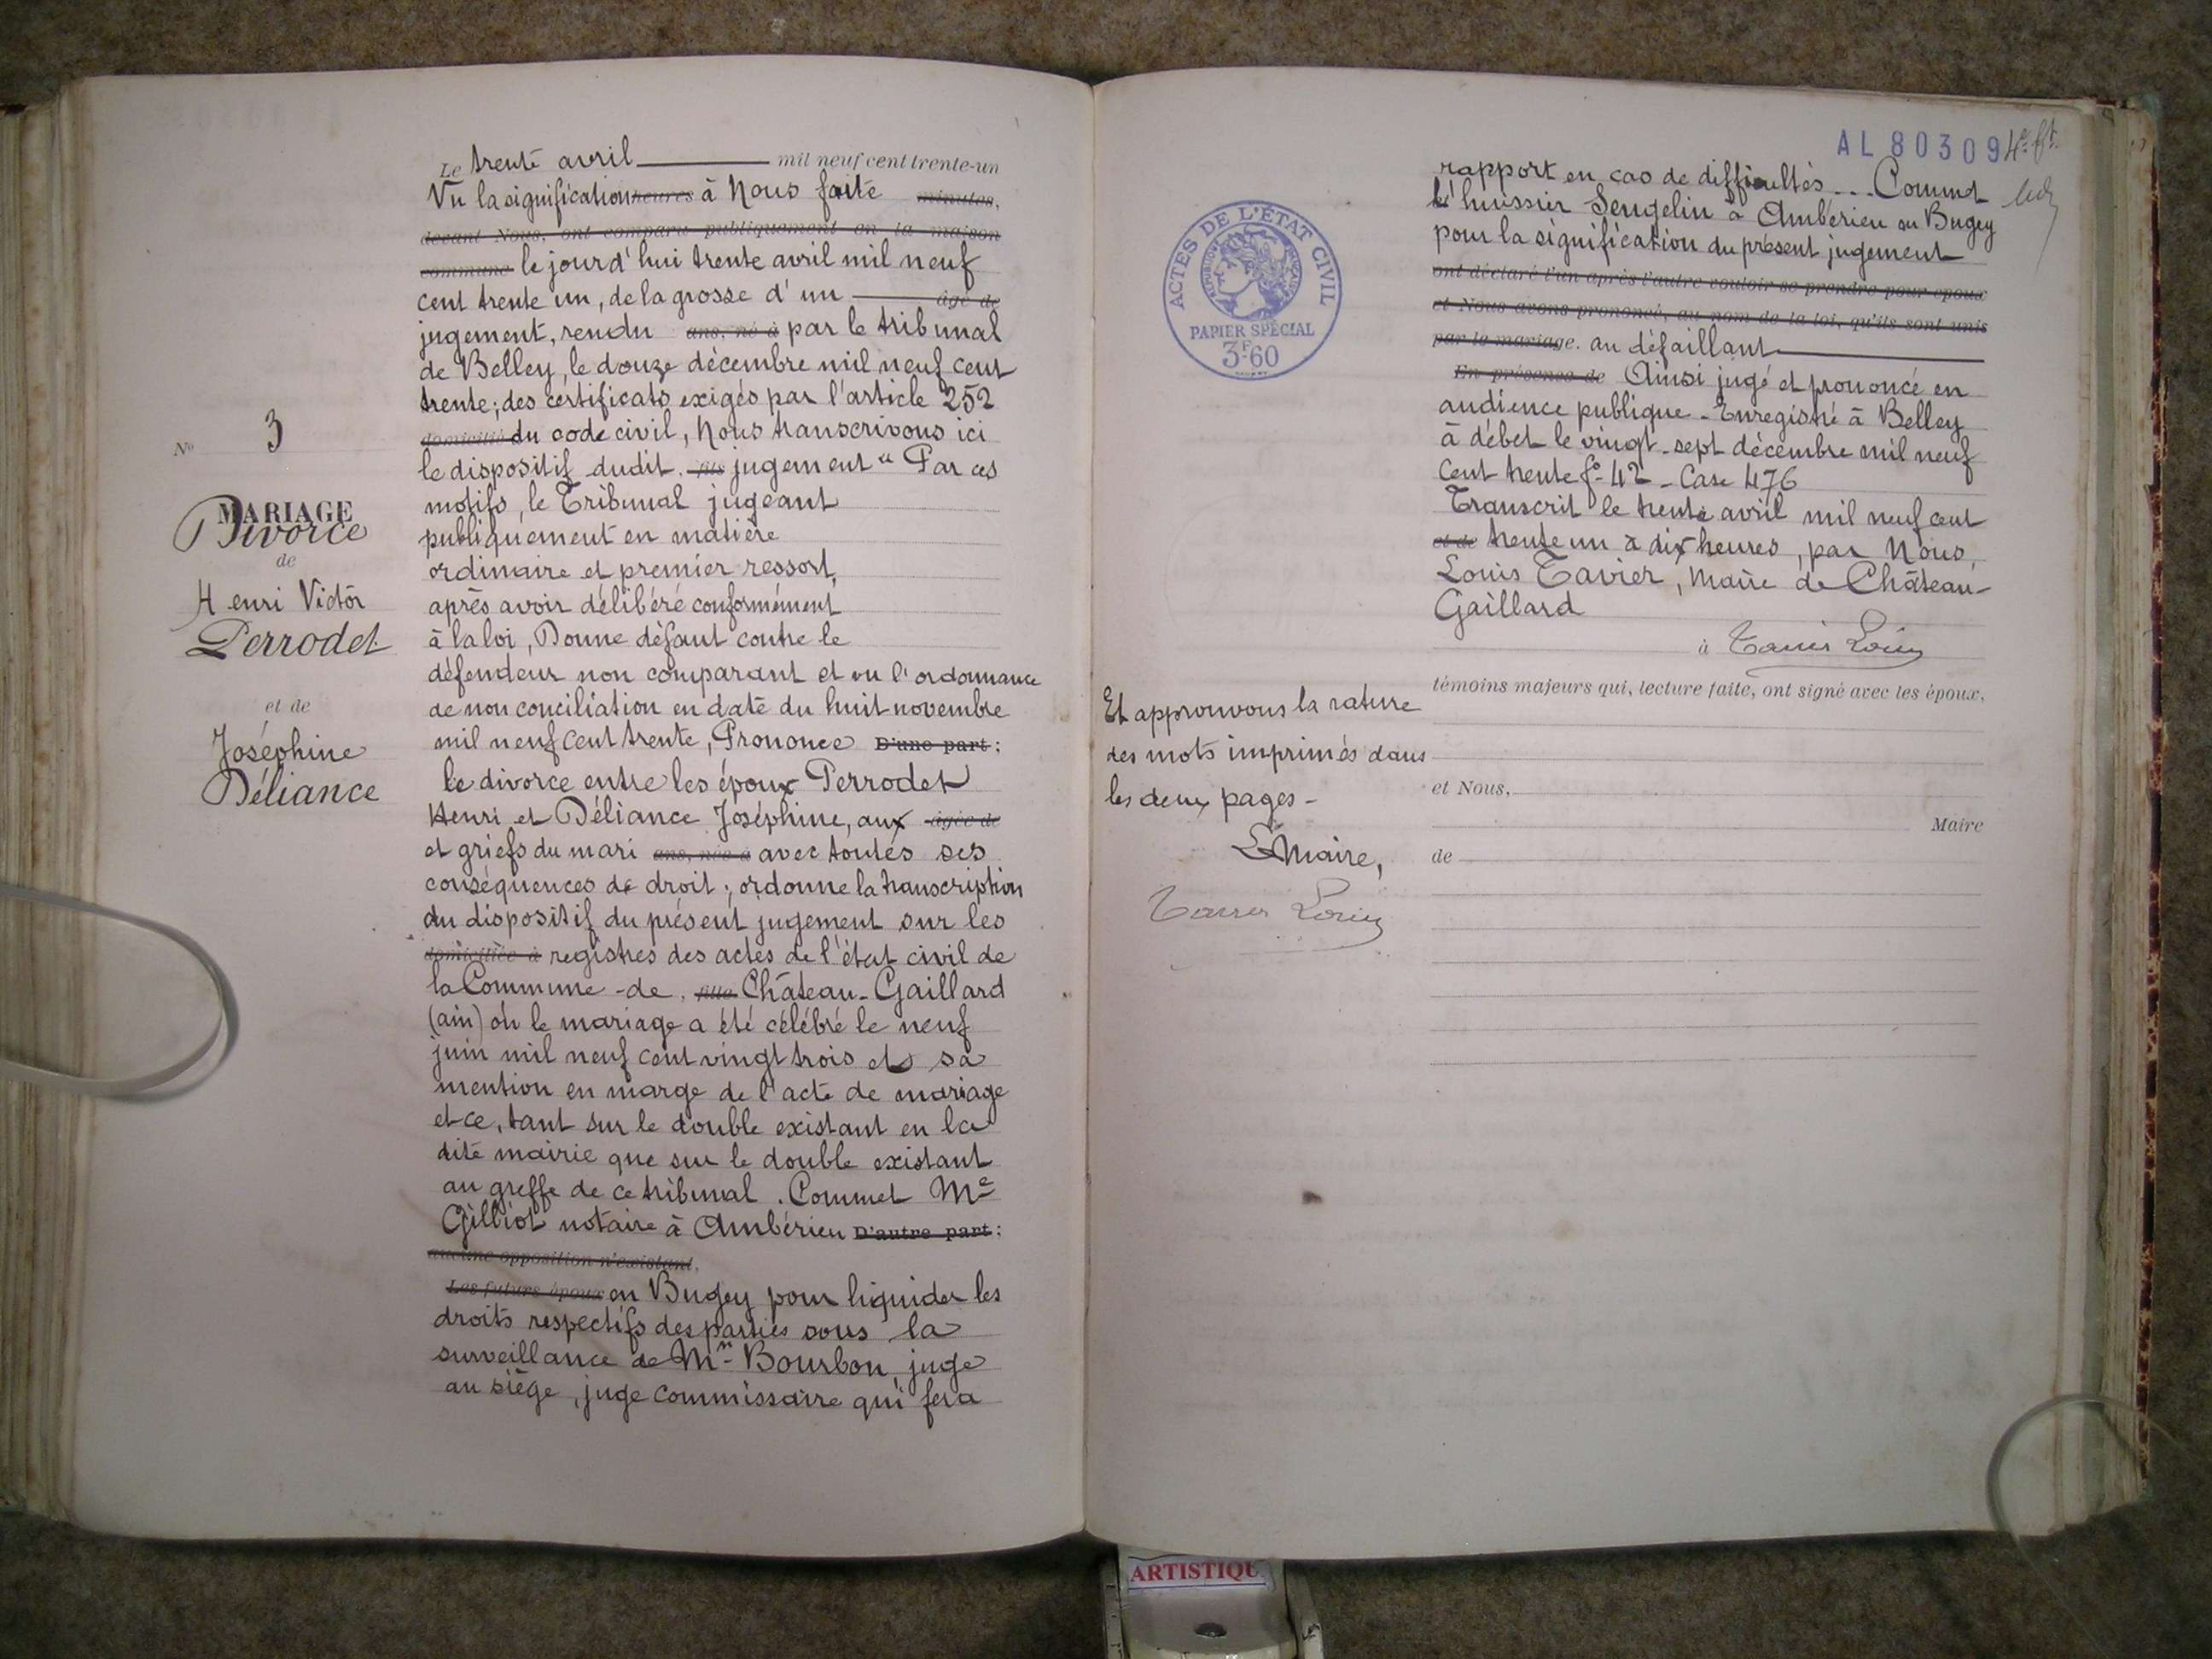 Le trente avril mil neuf cent trente-un
Vu la signification heures à Nous faite minutes,
devant Nous, ont comparu publiquement en la maison
commune le jourd'hui trente avril mil neuf
cent trente un, de la grosse d'un âgé de
jugement, rendu ans, né à par le tribunal
de Belley, le douze décembre mil neuf cent
trente; des certificats exigés par l'article 252
domicilié du code civil, Nous transcrivons ici
le dispositif dudit. fils jugement " Par ces
motifs, le Tribunal jugeant
publiquement en matière
ordinaire et premier ressort,
après avoir délibéré conformément
à la loi, Donne défaut contre le
défendeur non comparant et vu l'ordonnance
de non conciliation en date du huit novembre
mil neuf cent trente, Prononce D'une part;
le divorce entre les époux Perrodet
Henri et Déliance Joséphine, aux âgée de
et griefs du mari ans, née à avec toutes ses
conséquences de droit; ordonne la transcription
du dispositif du présent jugement sur les
domiciliée à registres des actes de l'état civil de
la Commune de. fille Château-Gaillard
(ain) où le mariage a été célébré le neuf
juin mil neuf cent vingt trois et sa
mention en marge de l'acte de mariage
et ce, tant sur le double existant en la
dite mairie que sur le double existant
au greffe de ce tribunal. Commet Me
Gilliot notaire à Ambérieu D'autre part;
aucune opposition n'existant.
Les futurs époux en Bugey pour liquider les
droits respectifs des parties sous la
surveillance de Mr Bourbon juge
au siège, juge commissaire qui fera
No 3
MARIAGE
Divorce
de
Henri Victor
Perrodet
et de
Joséphine
Déliance
AL 80309
ACTES DE L'ÉTAT CIVIL
RÉPUBLIQUE FRANÇAISE
PAPIER SPÉCIAL
3F.60
rapport en cas de difficultés... Commet
l'huissier Sengelin à Ambérieu en Bugey
pour la signification du présent jugement
ont déclaré l'un après l'autre vouloir se prendre pour époux
et Nous avons prononcé, au nom de la loi, qu'ils sont unis
par le mariage. au défaillant
En présence de Ainsi jugé et prononcé en
audience publique - Enregistré à Belley
à débet le vingt-sept décembre mil neuf
cent trente fo 42 - Case 476
Transcrit le trente avril mil neuf cent
et de trente un à dix heures, par Nous,
Louis Tavier, Maire de Château-
Gaillard
à Tavier Louis
témoins majeurs qui, lecture faite, ont signé avec les époux,
et Nous,
Maire
de
Et approuvons la rature
des mots imprimés dans
les deux pages -
Le Maire,
Tavier Louis
ARTISTIQU